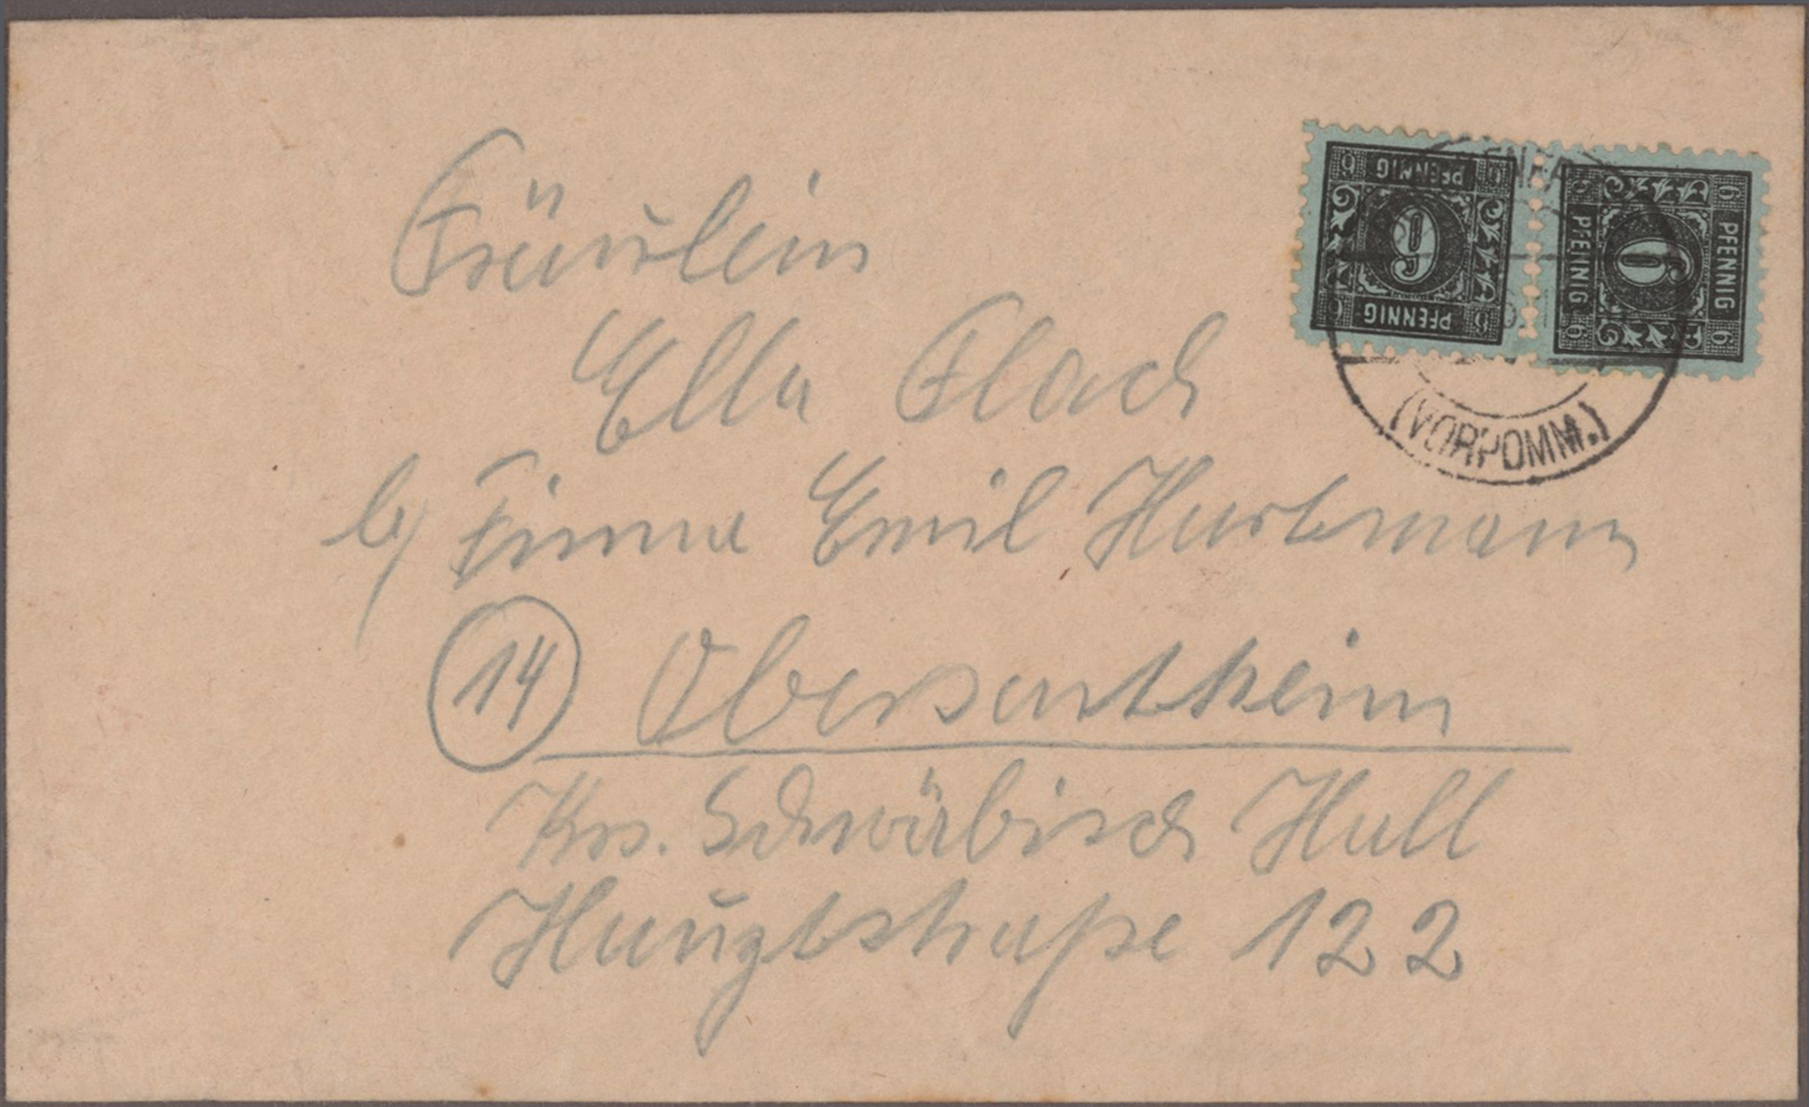 PFENNIG
PFENNIG
6
PFENNIG
PFENNIG
6
(VORPOMM.)
Fräulein
Ella Flach
b/ Firma Emil Hartmann
14 Obersontheim
Krs. Schwäbisch Hall
Hauptstraße 122